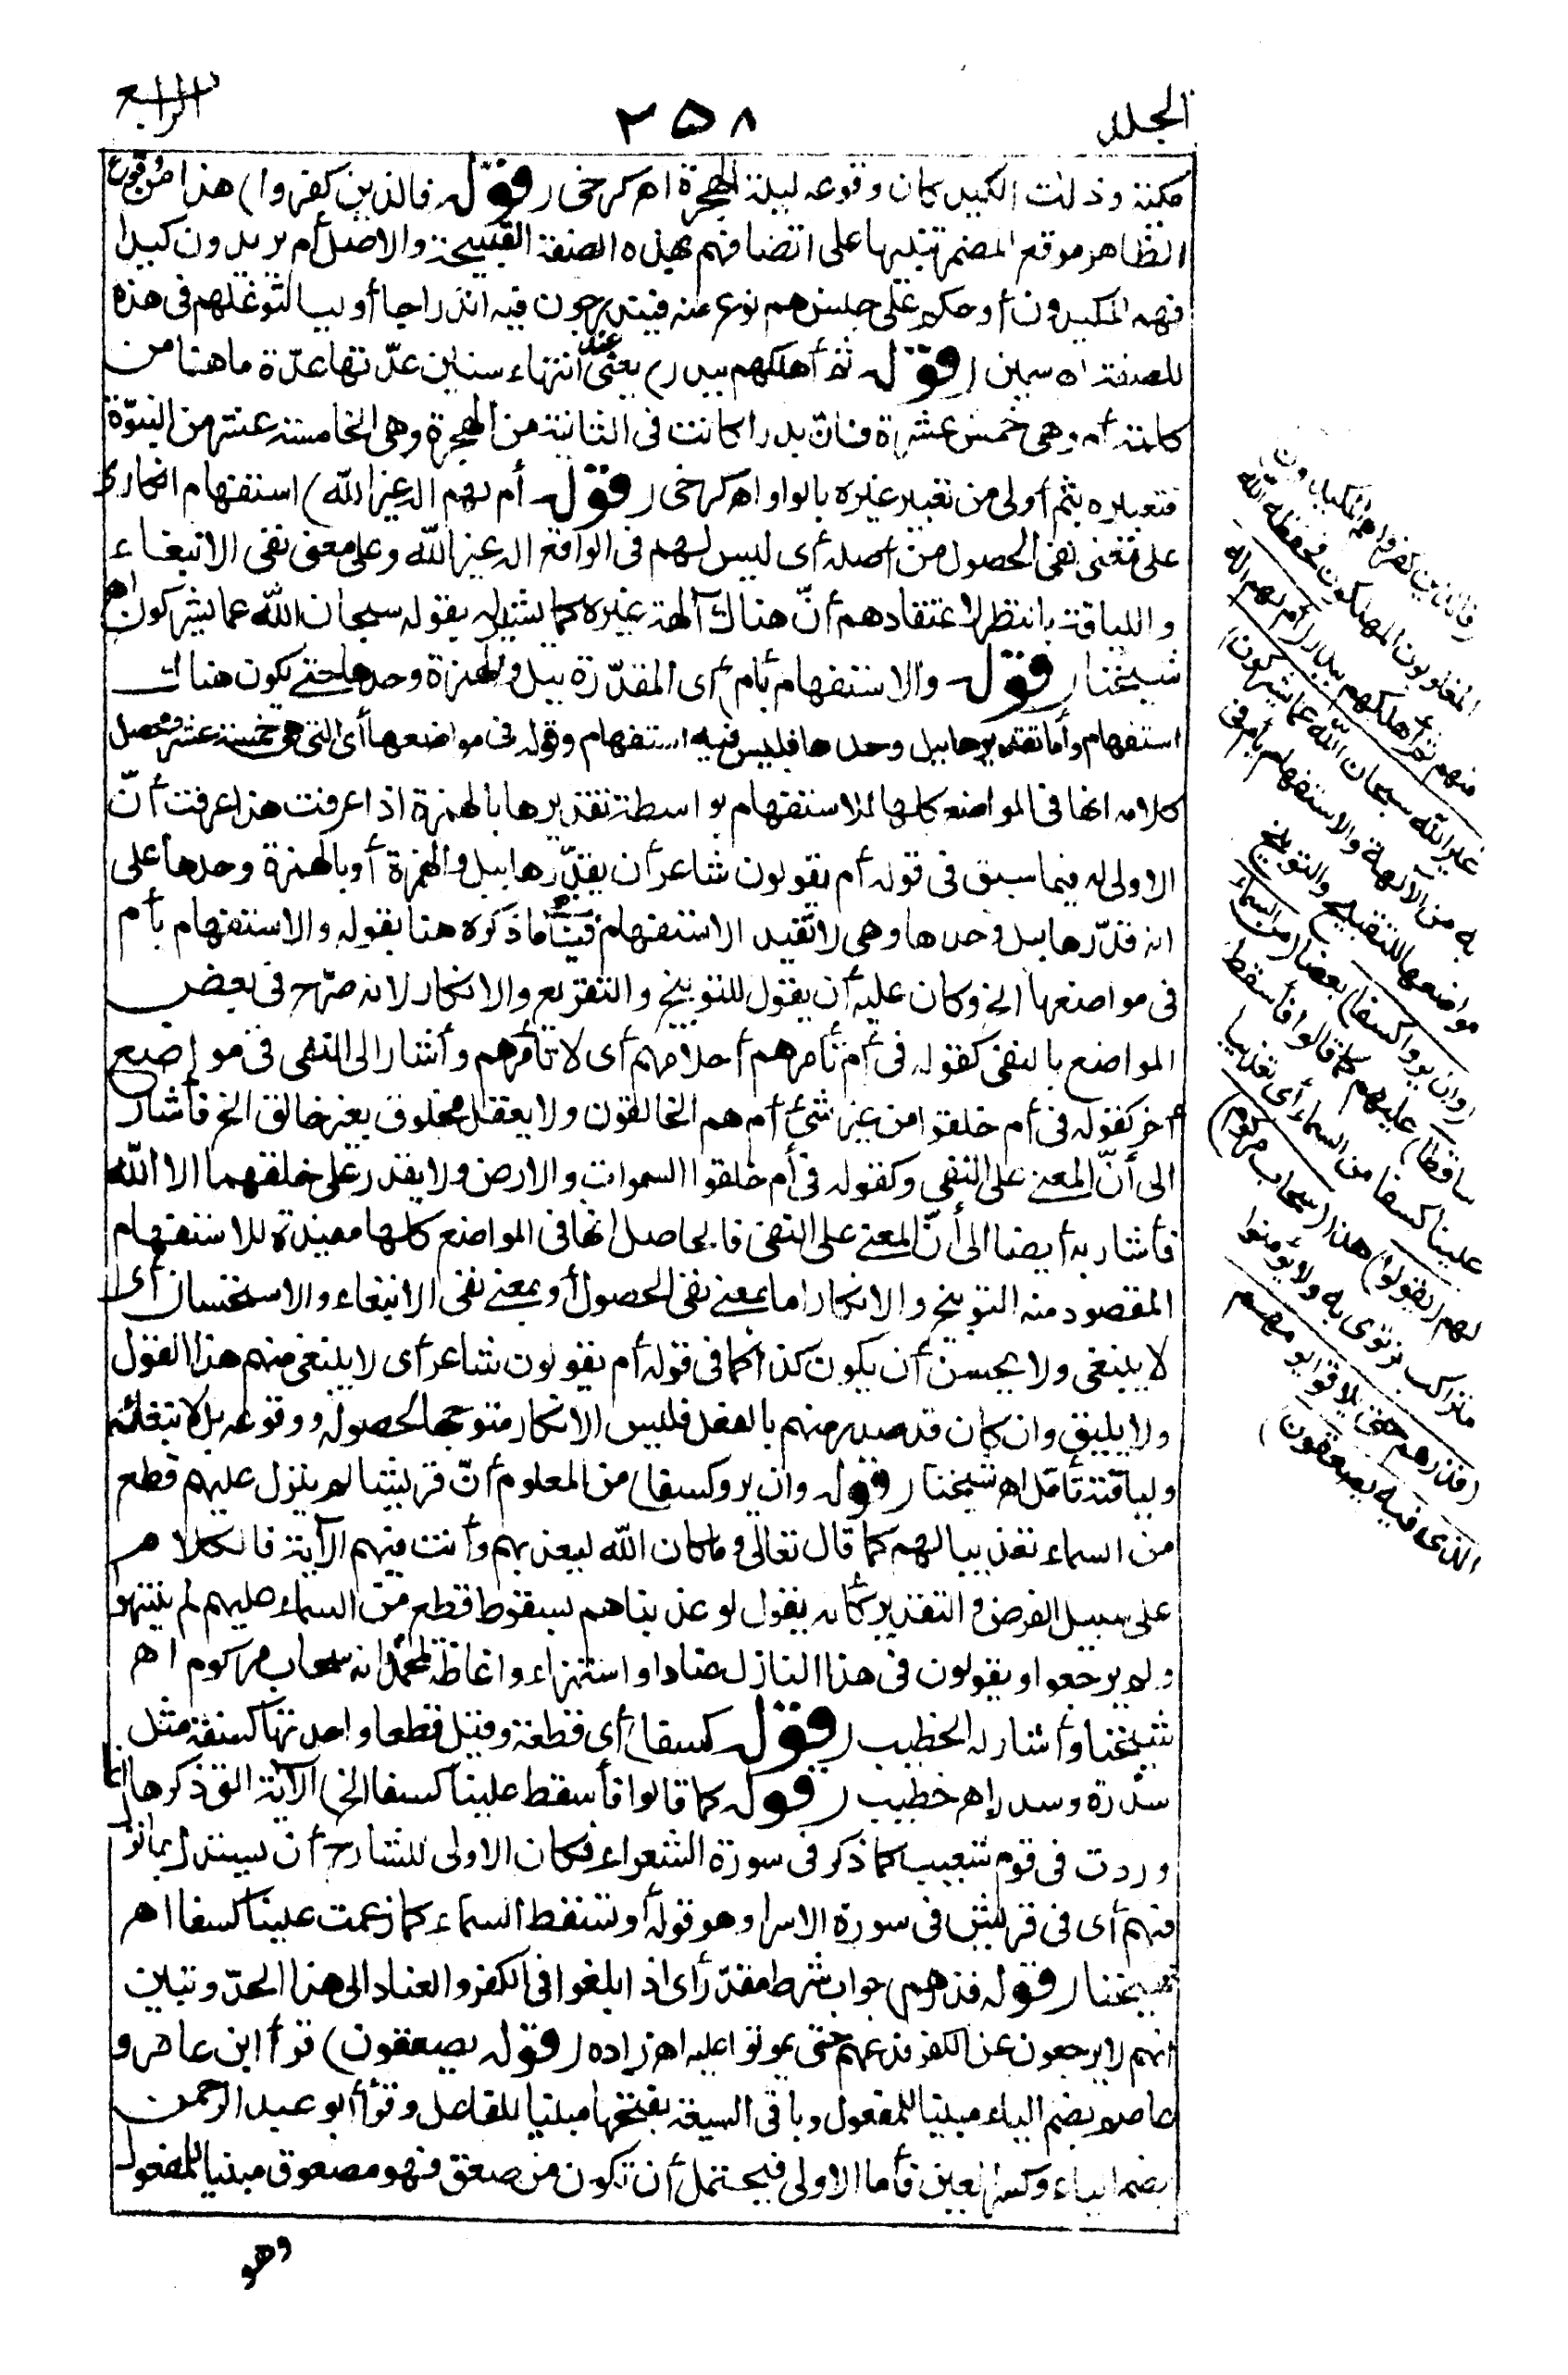 المجلد
٢٥٨
الرابع
مكنة وذلك الكيد كان وقوعه ليلة الهجرة اه كرخى (قوله فالذين كفروا) هذا من وقوع
الظاهر موقع المضمر تنبيها على اتصافهم بهذه الصفة القبيحة والاصل أم يريدون كيدا
فهم المكيدون أو حكم على جنس هم نوع منه فيندرجون فيه اندراجا أوليا لتوغلهم فى هذه
الصفة اه سمين (قوله ثم أهلكهم ببدر) يعنى عند انتهاء سنين عدّتها عدّة ما هنا من
كلمة أم وهى خمس عشرة فانّ بدرا كانت فى الثانية من الهجرة وهى الخامسة عشر من النبوّة
فتعبيره بثم أولى من تعبير غيره بالواو اه كرخى (قوله أم لهم اله غير الله) استفهام انكارى
على معنى نفى الحصول من أصله أى ليس لهم فى الواقع اله غير الله وعلى معنى نفى الانبغاء
واللياقة بالنظر لاعتقادهم أنّ هناك آلهة غيره كما يشير له بقوله سبحان الله عما يشركون اه
شيخنا (قوله والاستفهام بأم) أى المقدّرة ببل والهمزة وحدها حتى يكون هناك
استفهام وأما تقديرها ببل وحدها فليس فيه استفهام وقوله فى مواضعها أى التى هى خمسة عشر ومحصل
كلامه انها فى المواضع كلها للاستفهام بواسطة تقديرها بالهمزة اذا عرفت هذا عرفت أنّ
الاولى له فيما سبق فى قوله أم يقولون شاعر أن يقدّرها ببل والهمزة أو بالهمزة وحدها على
انه قدّرها ببل وحدها وهى لا تفيد الاستفهام ما ذكره هنا بقوله والاستفهام بأم
فى مواضعها الخ وكان عليه أن يقول للتوبيخ والتقريع والانكار لانه صرّح فى بعض
المواضع بالنفى كقوله فى أم تأمرهم أحلامهم أى لا تأمرهم وأشار الى النفى فى مواضع
أخر كقوله فى أم خلقوا من غير شئ أم هم الخالقون ولا يعقل مخلوق بغير خالق الخ فأشار
الى أنّ المعنى على النفى وكقوله فى أم خلقوا السموات والارض ولا يقدر على خلقهما الا الله
فأشار به أيضا الى أنّ المعنى على النفى فالحاصل انها فى المواضع كلها مفيدة للاستفهام
المقصود منه التوبيخ والانكار اما بمعنى نفى الحصول أو بمعنى نفى الانبغاء والاستحسان أى
لا ينبغى ولا يحسن أن يكون كذا كما فى قوله أم يقولون شاعر أى لا ينبغى منهم هذا القول
ولا يليق وان كان قد صدر منهم بالفعل فليس الانكار متوجها لحصوله ووقوعه بل لانبغائه
ولياقته تأمّل اه شيخنا (قوله وان يروا كسفا) من المعلوم أنّ قريشا لم ينزل عليهم قطع
من السماء تعذيبا لهم كما قال تعالى وما كان الله ليعذبهم وأنت فيهم الآية فالكلام
على سبيل الفرض والتقدير كأنه يقول لو عذبناهم بسقوط قطع من السماء عليهم لم ينتهوا
ولم يرجعوا ويقولون فى هذا النازل عنادا واستهزاء واغاظة لمحمد انه سحاب مركوم اه
شيخنا وأشار له الخطيب (قوله كسفا) أى قطعة وقيل قطعا واحدتها كسفة مثل
سدرة وسدر اه خطيب (قوله كما قالوا فأسقط علينا كسفا الخ) الآية التى ذكرها انما
وردت فى قوم شعيب كما ذكر فى سورة الشعراء فكان الاولى للشارح أن يستدل بما نزل
فيهم أى فى قريش فى سورة الاسرا وهو قوله أو تسقط السماء كما زعمت علينا كسفا اه
شيخنا (قوله فذرهم) جواب شرط مقدّر أى اذا بلغوا فى الكفر والعناد الى هذا الحدّ وتبين
انهم لا يرجعون عن الكفر فدعهم حتى يموتوا عليه اه زاده (قوله يصعقون) قرأ ابن عامر و
عاصم بضم الياء مبنيا للمفعول وباقى السبعة بفتحها مبنيا للفاعل وقرأ أبو عبد الرحمن
بضم الياء وكسر العين فأما الاولى فيحتمل أن تكون من صعق فهو مصعوق مبنيا للمفعول
وهو
(فالذين كفروا هم المكيدون)
المغلوبون المهلكون فحفظه الله
منهم ثم أهلكهم ببدر (أم لهم اله
غير الله سبحان الله عما يشركون)
به من الآلهة والاستفهام بأم فى
مواضعها للتقبيح والتوبيخ
(وان يروا كسفا) بعضا (من السماء
ساقطا) عليهم كما قالوا فأسقط
علينا كسفا من السماء أى تعذيبا
لهم (يقولوا) هذا (سحاب مركوم)
متراكب نرتوى به ولا يؤمنوا
(فذرهم حتى يلاقوا يومهم
الذى فيه يصعقون)